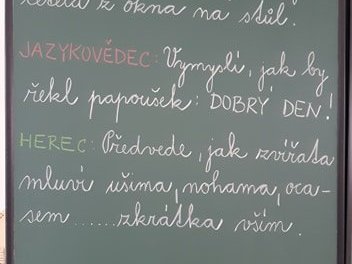 letěla z okna na stůl.
JAZYKOVĚDEC: Vymyslí, jak by
řekl papoušek: DOBRÝ DEN!
HEREC: Předvede, jak zvířata
mluví ušima, nohama, oca-
sem ...... zkrátka vším.